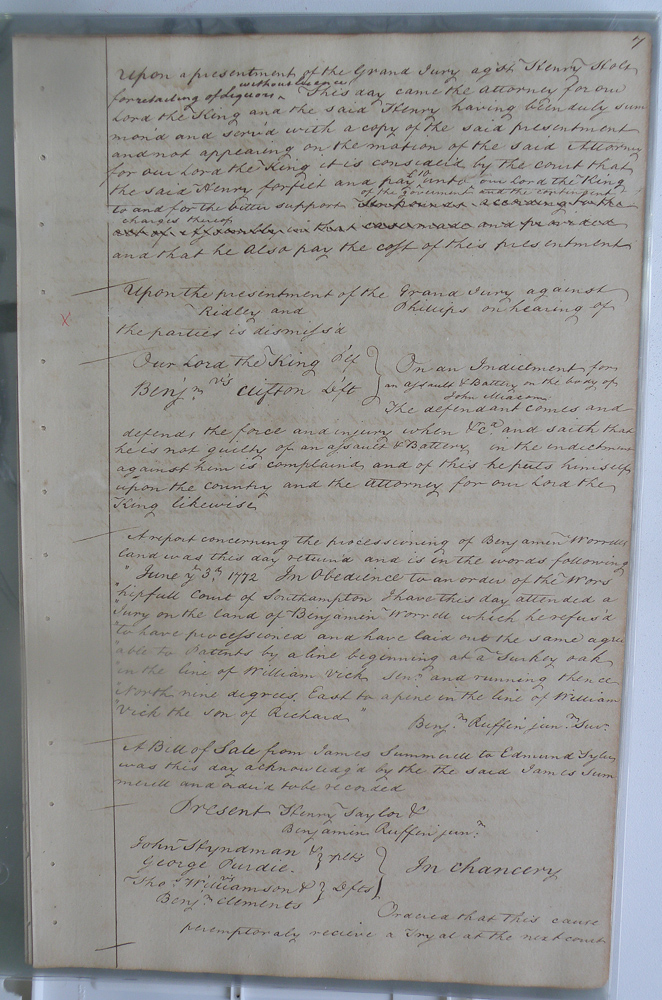 7
Upon a presentment of the Grand Jury agst Henry Holt
without licence
for retailing of liquors This day came the attorney for our
Lord the King and the said Henry having been duly sum
mon'd and serv'd with a copy of the said presentment
and not appearing on the motion of the said Attorney
for our Lord the King it is consider'd by the court that
the said Henry forfeit and pay £10 unto our Lord the King
of the government and the contingent
to and for the better support ten pounds according to the
charges thereof
act of assembly in that case made and provided
and that he also pay the cost of this presentment
Upon the presentment of the Grand Jury against
Ridley and Phillips on hearing of
the parties is dismiss'd
Our Lord the King Plf } On an Indictment for
an assault & Battery on the body of
vs
Benjn Clifton Deft John
The defendant comes and
defends the force and injury when &ca and saith that
he is not guilty of an assault & Battery in the indictment
against him is complaind and of this he puts himself
upon the country and the attorney for our Lord the
King likewise
A report concerning the processioning of Benjamin Worrells
land was this day return'd and is in the words following
"June ye 3th 1772 In Obedience to an order of the Wors
"hipfull Court of Southampton I have this day attended a
"Jury on the land of Benjamin Worrell which he refus'd
"to have processioned and have laid out the same agre
"able to Pattents by a line beginning at a Turkey oak
"in the line of William Vick Senr and running thence
"North nine degrees East to a pine in the line of William
"Vick the son of Richard"
Benjn Ruffin junr Surr
A Bill of Sale from James Summerell to Edmund Tyler
was this day acknowledg'd by the the said James Sum
merell and order'd to be recorded
Present Henry Taylor &
Benjamin Ruffin junr
John Hyndman & } plts
George Purdie
vs } In chancery
Thos Williamson & } Defts
Benjn Clements
Ordered that this cause
peremptoraly recieve a Tryal at the next court